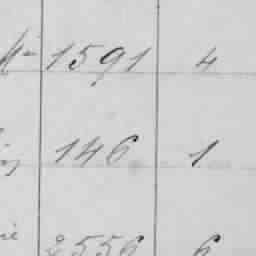 1591 4
146 1
2556 6